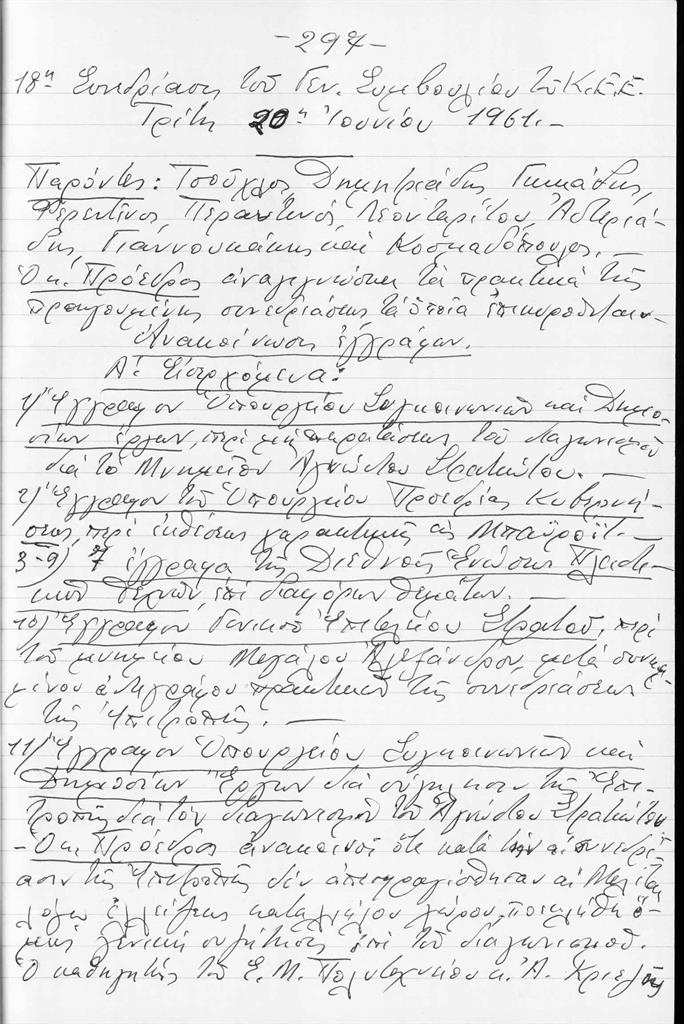 -297-
18η Συνεδρίασις τοῦ Γεν. Συμβουλίου τοῦ Κ.Ε.Ε.
Τρίτη 20η Ἰουνίου 1961.-
Παρόντες: Τσοῦχλος, Δημητριάδης,
Φερεντῖνος, Περαντινός, Λεονταρίτου, Ἀστεριά-
δης, Γιαννουκάκης καὶ Κοσμαδόπουλος.-
Ὁ κ. Πρόεδρος ἀναγιγνώσκει τὰ πρακτικὰ τῆς
προηγουμένης συνεδριάσεως τὰ ὁποῖα ἐπικυροῦνται.-
Ἀνακοίνωσις ἐγγράφων.
Α΄. Εἰσερχόμενα:
1) Ἔγγραφον Ὑπουργείου Συγκοινωνιῶν καὶ Δημο-
σίων ἔργων, περὶ μὴ παρατάσεως τοῦ διαγωνισμοῦ
διὰ τὸ Μνημεῖον Ἀγνώστου Στρατιώτου.-
2) Ἔγγραφον τοῦ Ὑπουργείου Προεδρίας Κυβερνή-
σεως, περὶ ἐκθέσεως χαρακτικῆς εἰς Μπαϋρόϊτ.-
3-9) 7 ἔγγραφα τῆς Διεθνοῦς Ἑνώσεως Πλαστι-
κῶν τεχνῶν, ἐπὶ διαφόρων θεμάτων.-
10) Ἔγγραφον Γενικοῦ Ἐπιτελείου Στρατοῦ, περὶ
τοῦ μνημείου Μεγάλου Ἀλεξάνδρου, μετὰ συνημ-
μένου ἀντιγράφου πρακτικοῦ τῆς συνεδριάσεως
τῆς Ἐπιτροπῆς.-
11) Ἔγγραφον Ὑπουργείου Συγκοινωνιῶν καὶ
Δημοσίων Ἔργων διὰ σύγκλησιν τῆς Ἐπι-
τροπῆς διὰ τὸν διαγωνισμὸ τοῦ Ἀγνώστου Στρατιώτου
- Ὁ κ. Πρόεδρος ἀνακοινοῖ ὅτι κατὰ τὴν συνεδρί-
ασιν τῆς Ἐπιτροπῆς δὲν ἀπεσφραγίσθησαν αἱ Μελέται
λόγῳ ἐλλείψεως καταλλήλου χώρου, ὅ-
μως γενικὴ συζήτησις ἐπὶ τοῦ διαγωνισμοῦ.
Ὁ καθηγητὴς τοῦ Ε. Μ. Πολυτεχνείου κ. Ἀ. Κριεζῆς